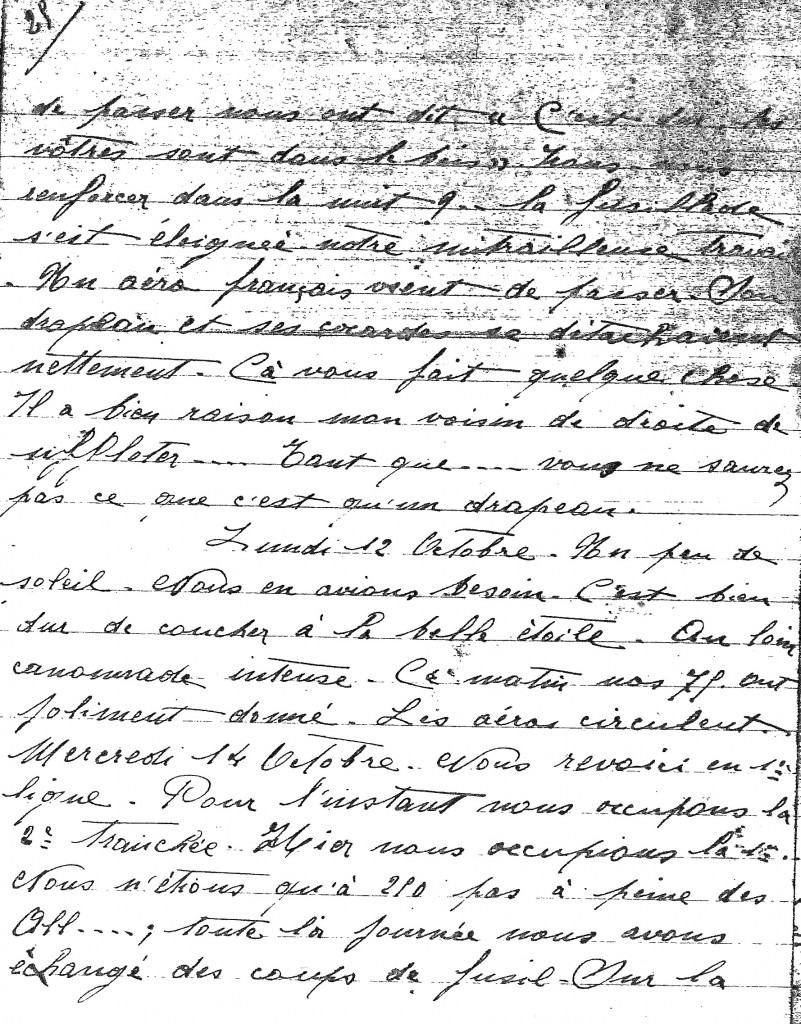 de passer nous ont dit " C'est dur les
vôtres sont dans le bois ".
renforcer dans la nuit ? - la fusillade
s'est éloignée notre mitrailleuse travai
. Un aéro français vient de passer. Son
drapeau et ses cocardes se détachaient
nettement. Cà vous fait quelque chose
Il a bien raison mon voisin de droite de
siffloter .... Tant que .... vous ne saurez
pas ce que c'est qu'un drapeau.
Lundi 12 Octobre. Un peu de
soleil. Nous en avions besoin. C'est bien
dur de coucher à la belle étoile. Au loin
canonnade intense. Ce matin nos 75 ont
joliment donné. Les aéros circulent.
Mercredi 14 Octobre. Nous revoici en 1re
ligne. Pour l'instant nous occupons la
2e tranchée. Hier nous occupions la 1re.
Nous n'étions qu'à 250 pas à peine des
All....; toute la journée nous avons
échangé des coups de fusil. Sur la